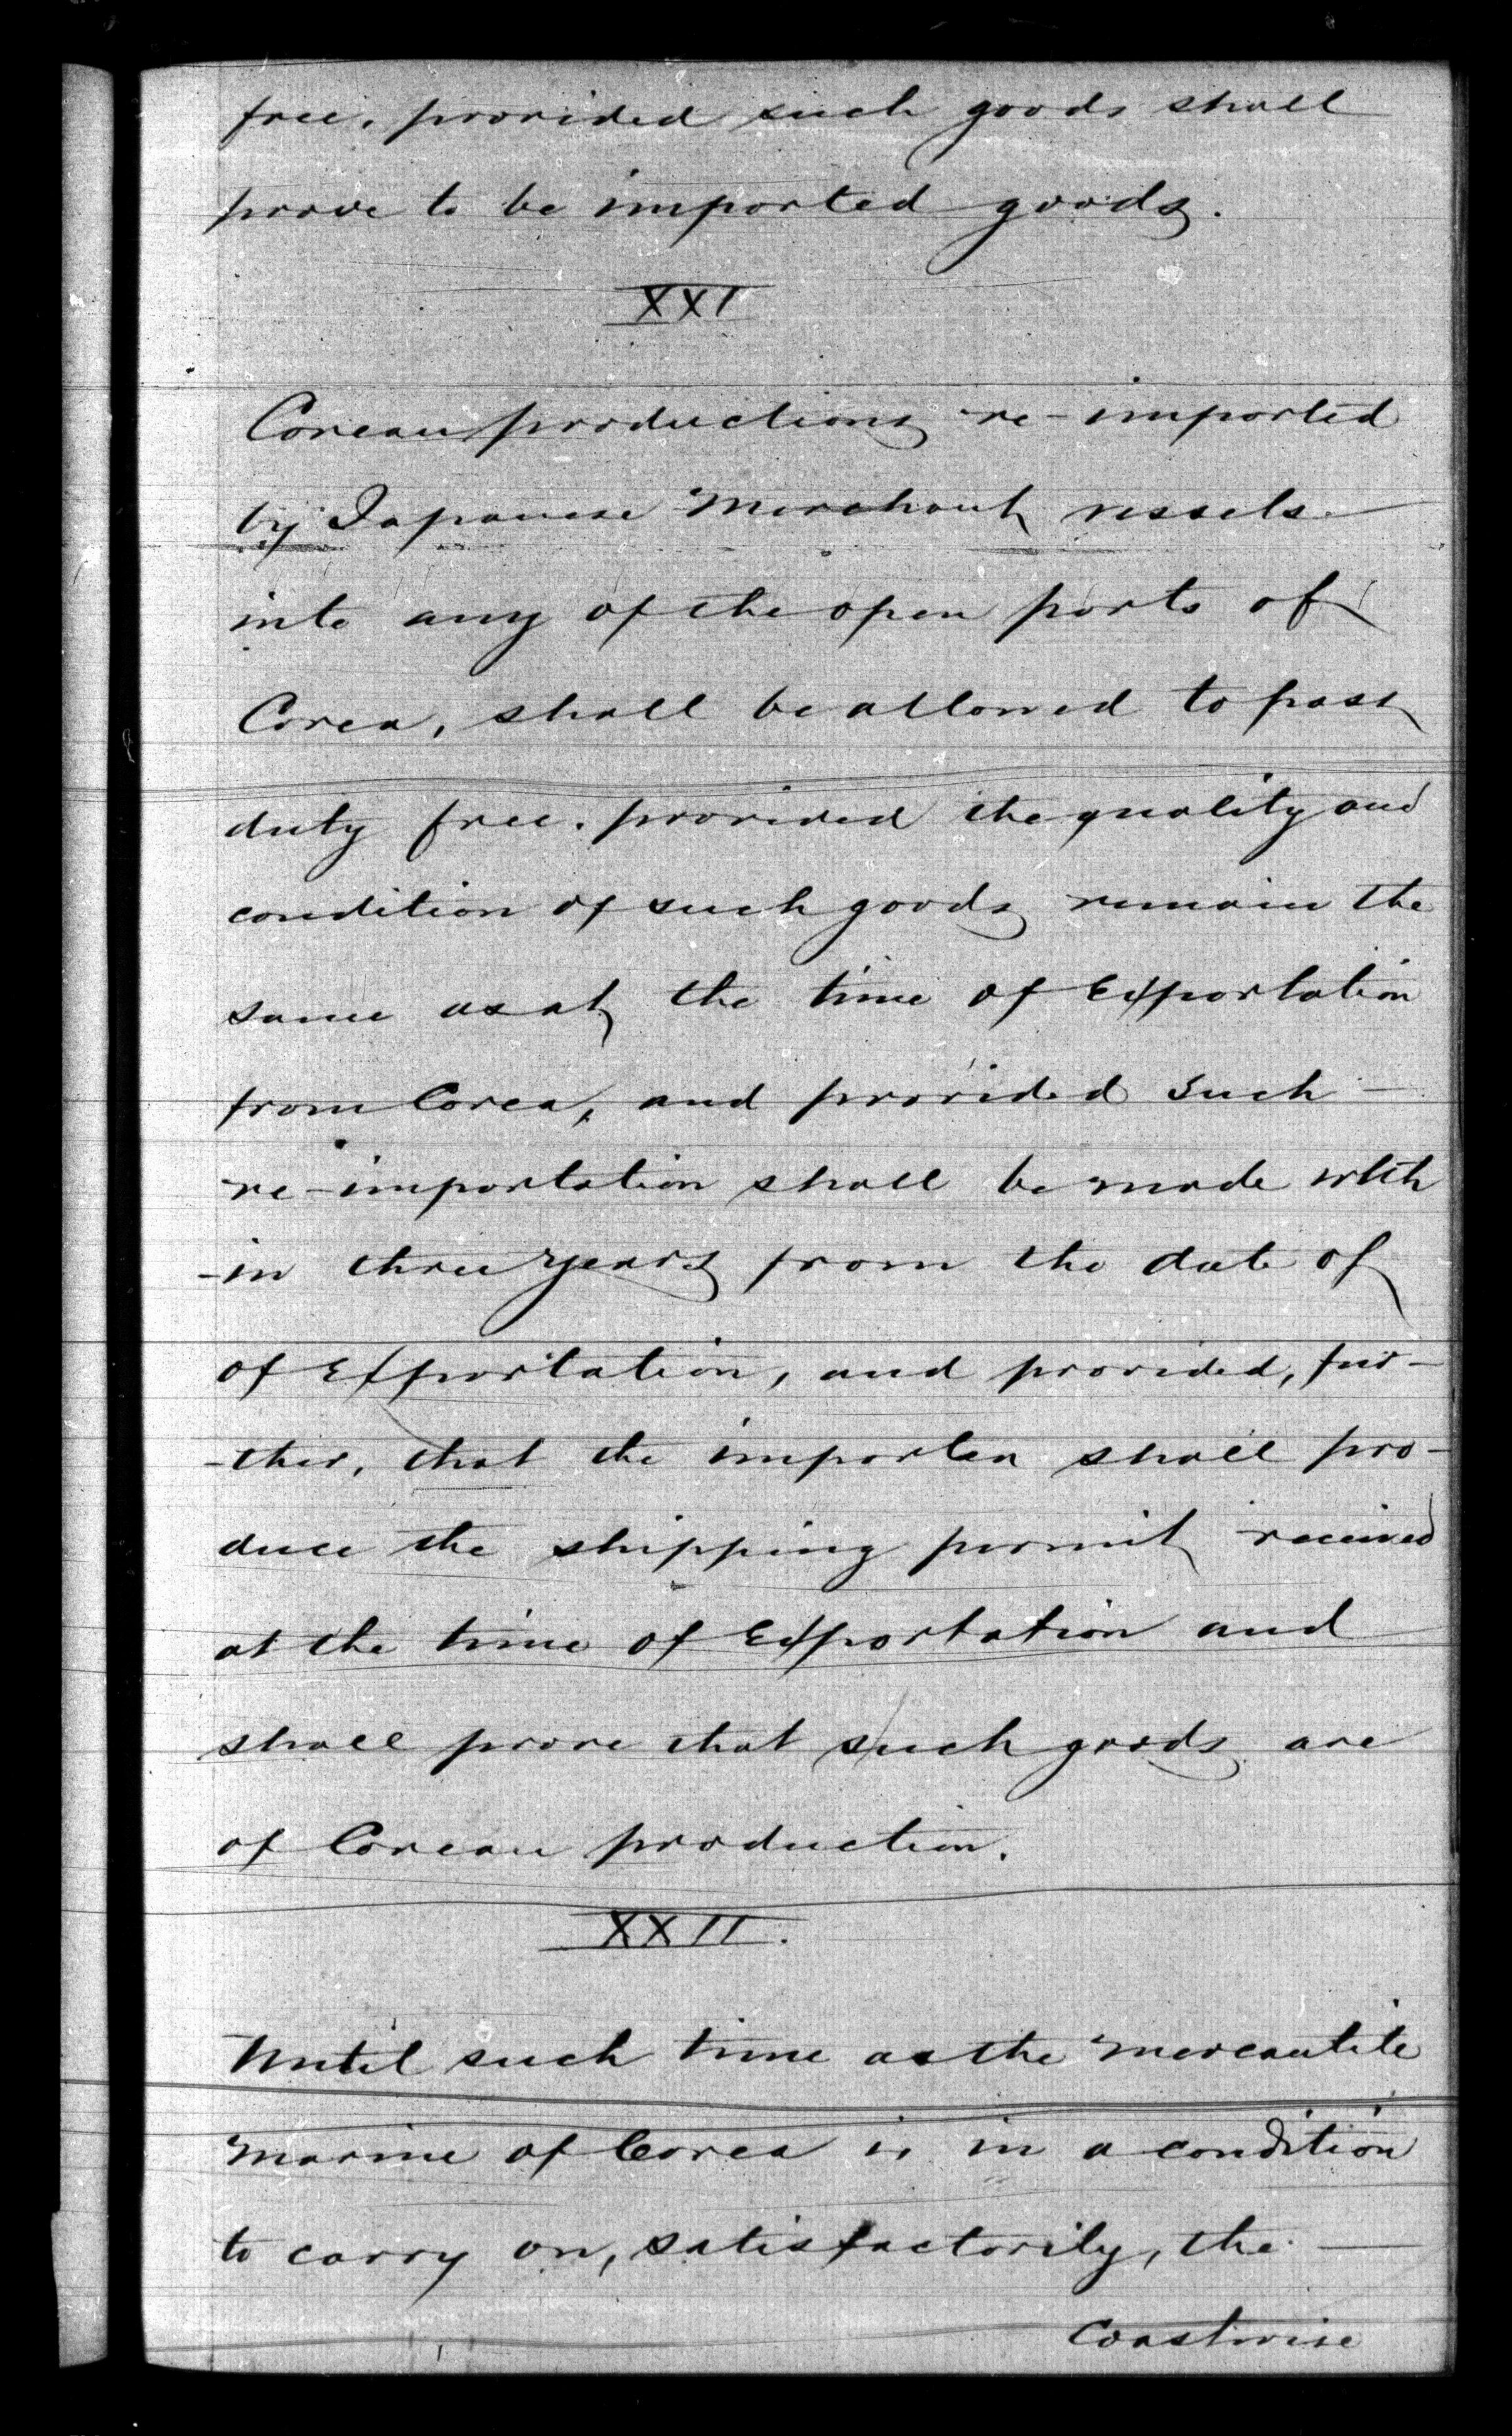 free, provided such goods shall
prove to be imported goods.
XXI
Corean productions re-imported
by Japanese Merchant vessels
into any of the open ports of
Corea, shall be allowed to pass
duty free, provided the quality and
condition of such goods remain the
same as at the time of Exportation
from Corea, and provided such
re-importation shall be made with
-in three years from the date of
of Exportation, and provided, fur-
-ther, that the importer shall pro-
duce the shipping permit received
at the time of Exportation and
shall prove that such goods are
of Corean production.
XXII.
Until such time as the mercantile
marine of Corea is in a condition
to carry on, satisfactorily, the
Coastwise